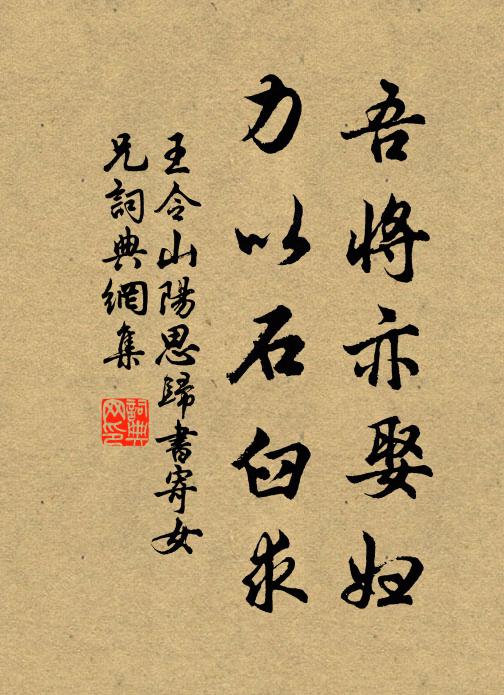 吾將亦娶婦
力以石臼求
王令山陽思歸書寄女
兄詞典網集
詞典
网印